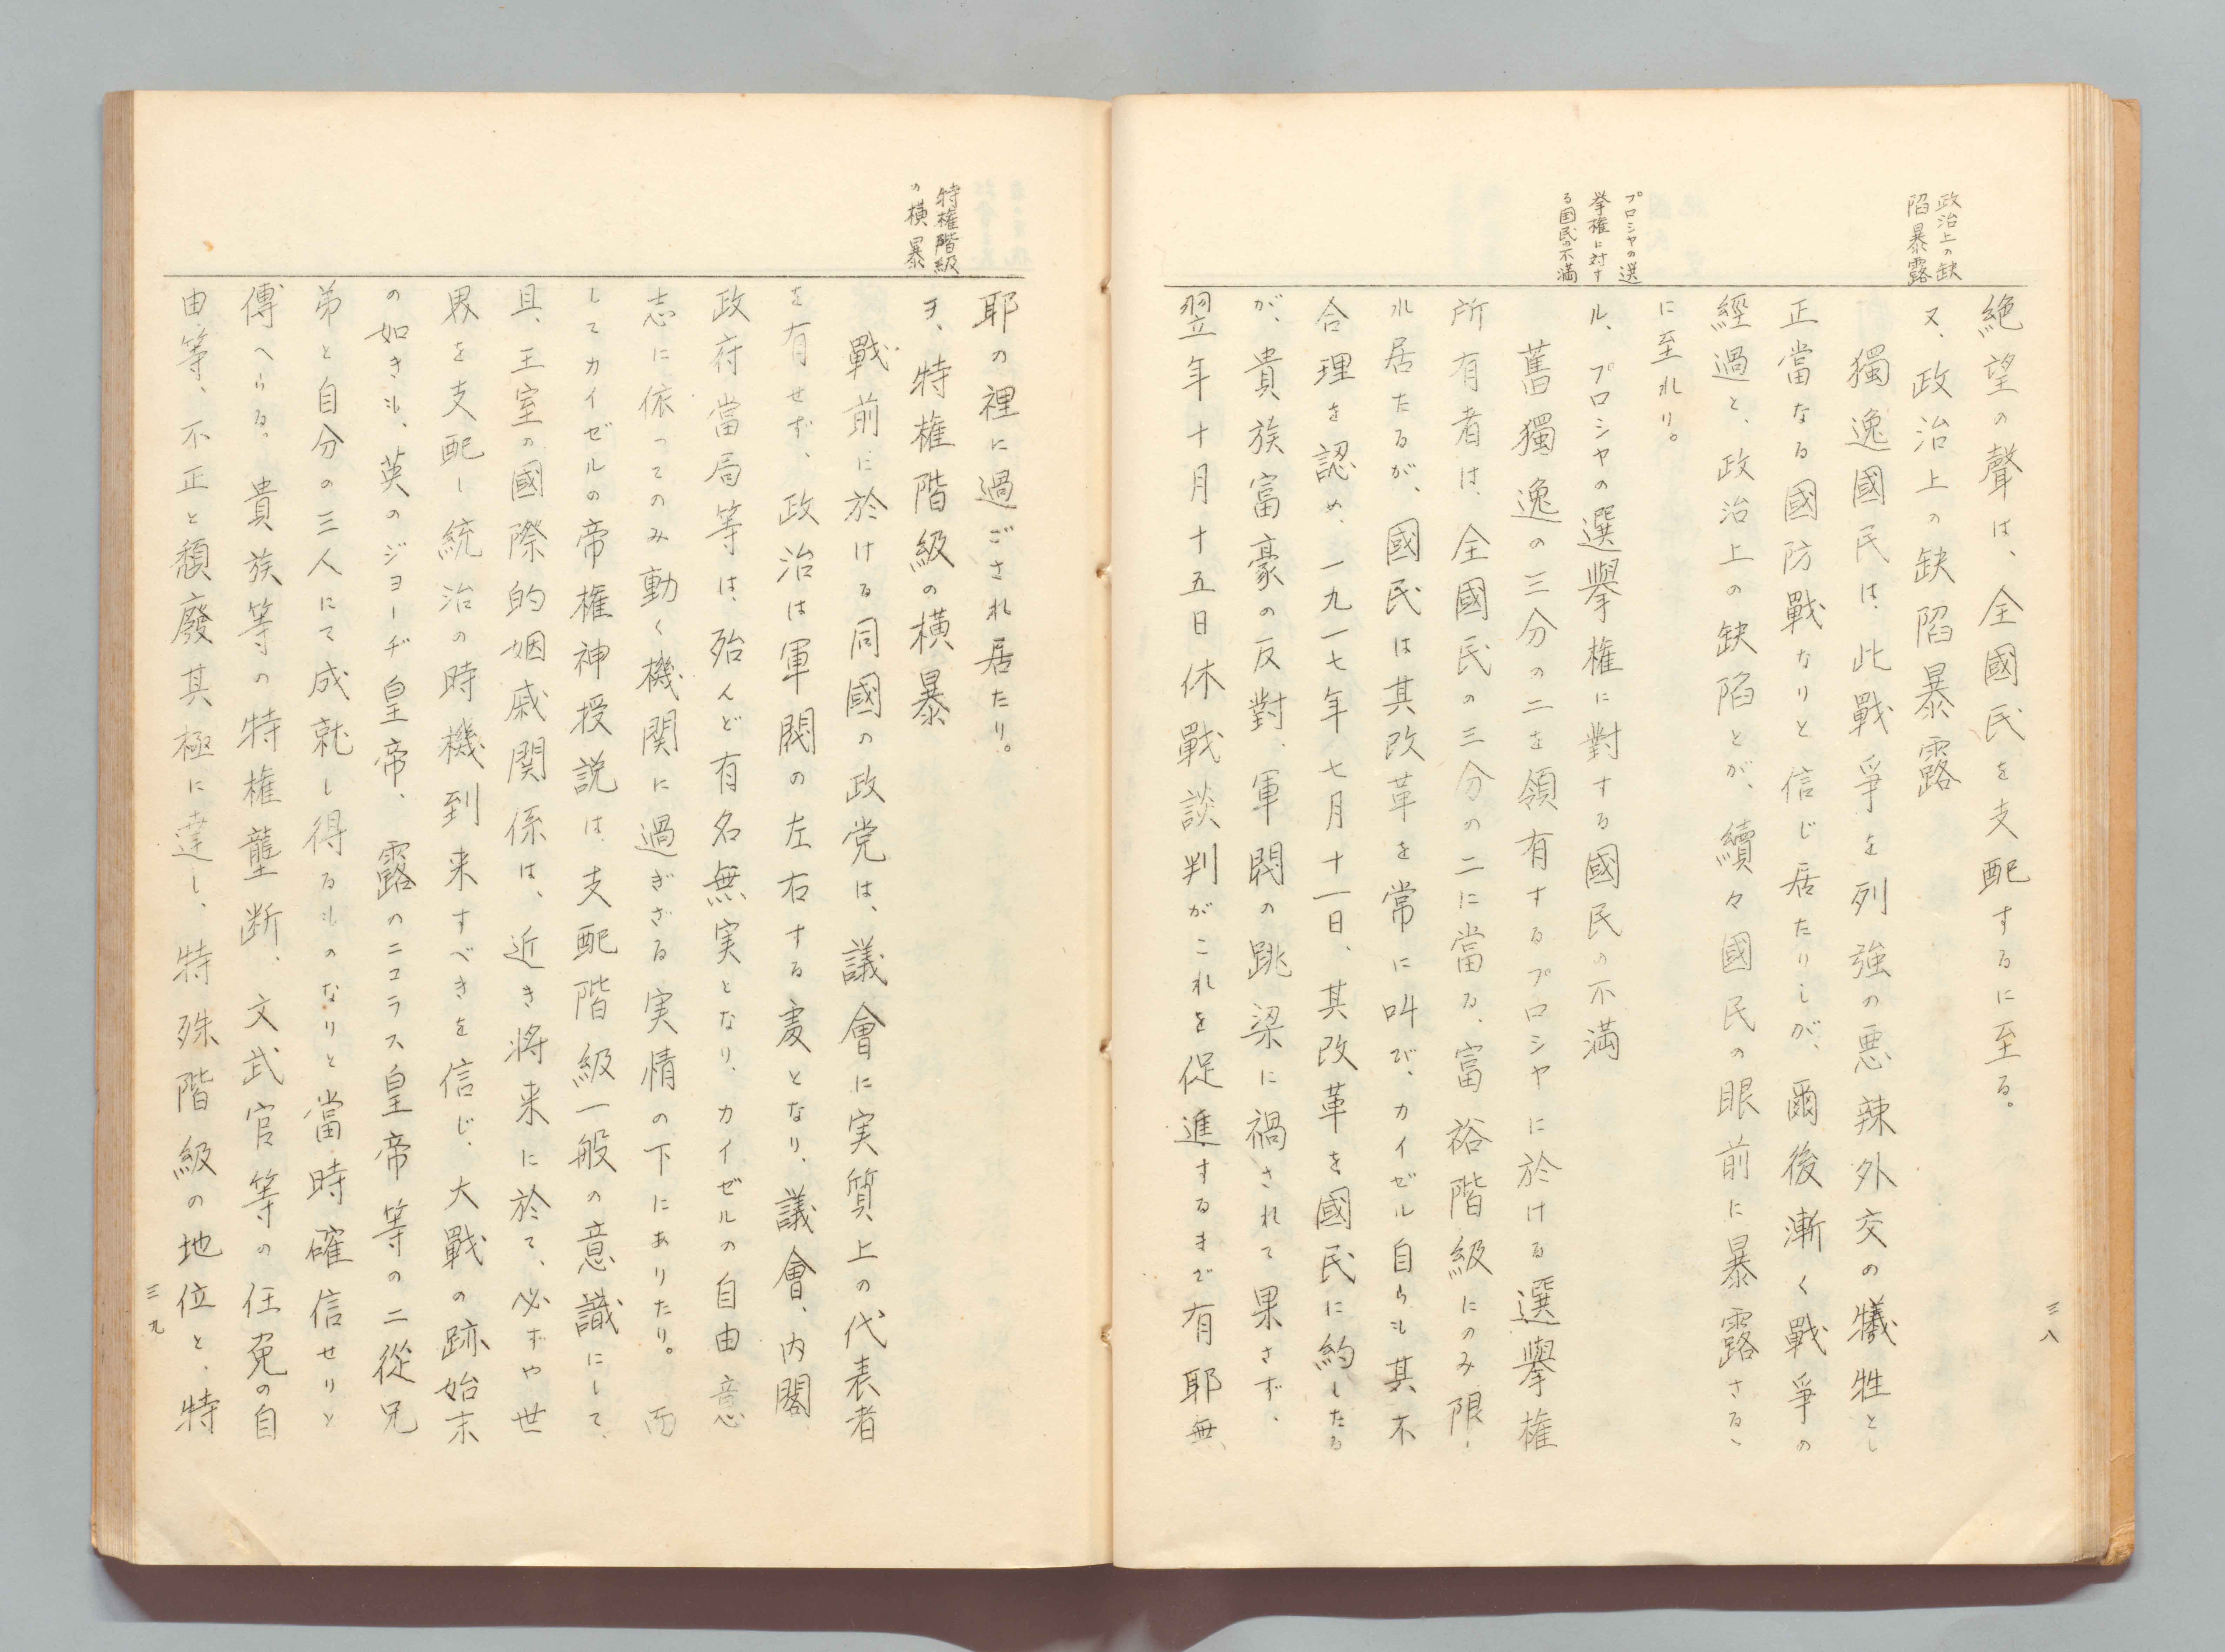 政治上の缺
陷暴露
プロシヤの選
挙権に対す
る国民の不満
絶望の聲は、全國民を支配するに至る。
ヌ、政治上の缺陷暴露
獨逸國民は、此戰爭を列強の悪辣外交の犠牲とし
正當なる國防戰なりと信じ居たりしが、爾後漸く戰爭の
經過と、政治上の缺陷とが、續々國民の眼前に暴露さるゝ
に至れり。
ル、プロシヤの選擧権に對する國民の不満
舊獨逸の三分の二を領有するプロシヤに於ける選擧権
所有者は、全國民の三分の二に當る、富裕階級にのみ限ら
れ居たるが、國民は其改革を常に叫び、カイゼル自らも其不
合理を認め、一九一七年七月十一日、其改革を國民に約したる
が、貴族富豪の反對、軍閥の跳梁に禍されて果さず、
翌年十月十五日休戰談判がこれを促進するまで有耶無
三八
特権階級
の横暴
耶の裡に過ごされ居たり。
ヲ、特権階級の横暴
戰前に於ける同國の政党は、議會に実質上の代表者
を有せず、政治は軍閥の左右する處となり、議會、内閣
政府當局等は、殆んど有名無実となり、カイゼルの自由意
志に依つてのみ動く機関に過ぎざる実情の下にありたり。而
してカイゼルの帝権神授説は、支配階級一般の意識にして、
且、王室の國際的姻戚関係は、近き将来に於て、必ずや世
界を支配し統治の時機到来すべきを信じ、大戰の跡始末
の如きも、英のジヨーヂ皇帝、露のニコラス皇帝等の二從兄
弟と自分の三人にて成就し得るものなりと當時確信せりと
傳へらる。貴族等の特権壟断、文武官等の任免の自
由等、不正と頽廢其極に達し、特殊階級の地位と、特
三九